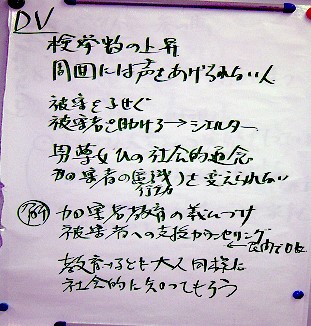 DV
検挙数の上昇
周囲には声をあげられない人
被害をふせぐ
被害者を助ける→シェルター
男尊女ひの社会的通念
加害者の意識を変えられない
行力
加害者教育の義ムづけ
被害者への支援カウンセリング
教育 子ども 大人同様に
社会的に知ってもらう